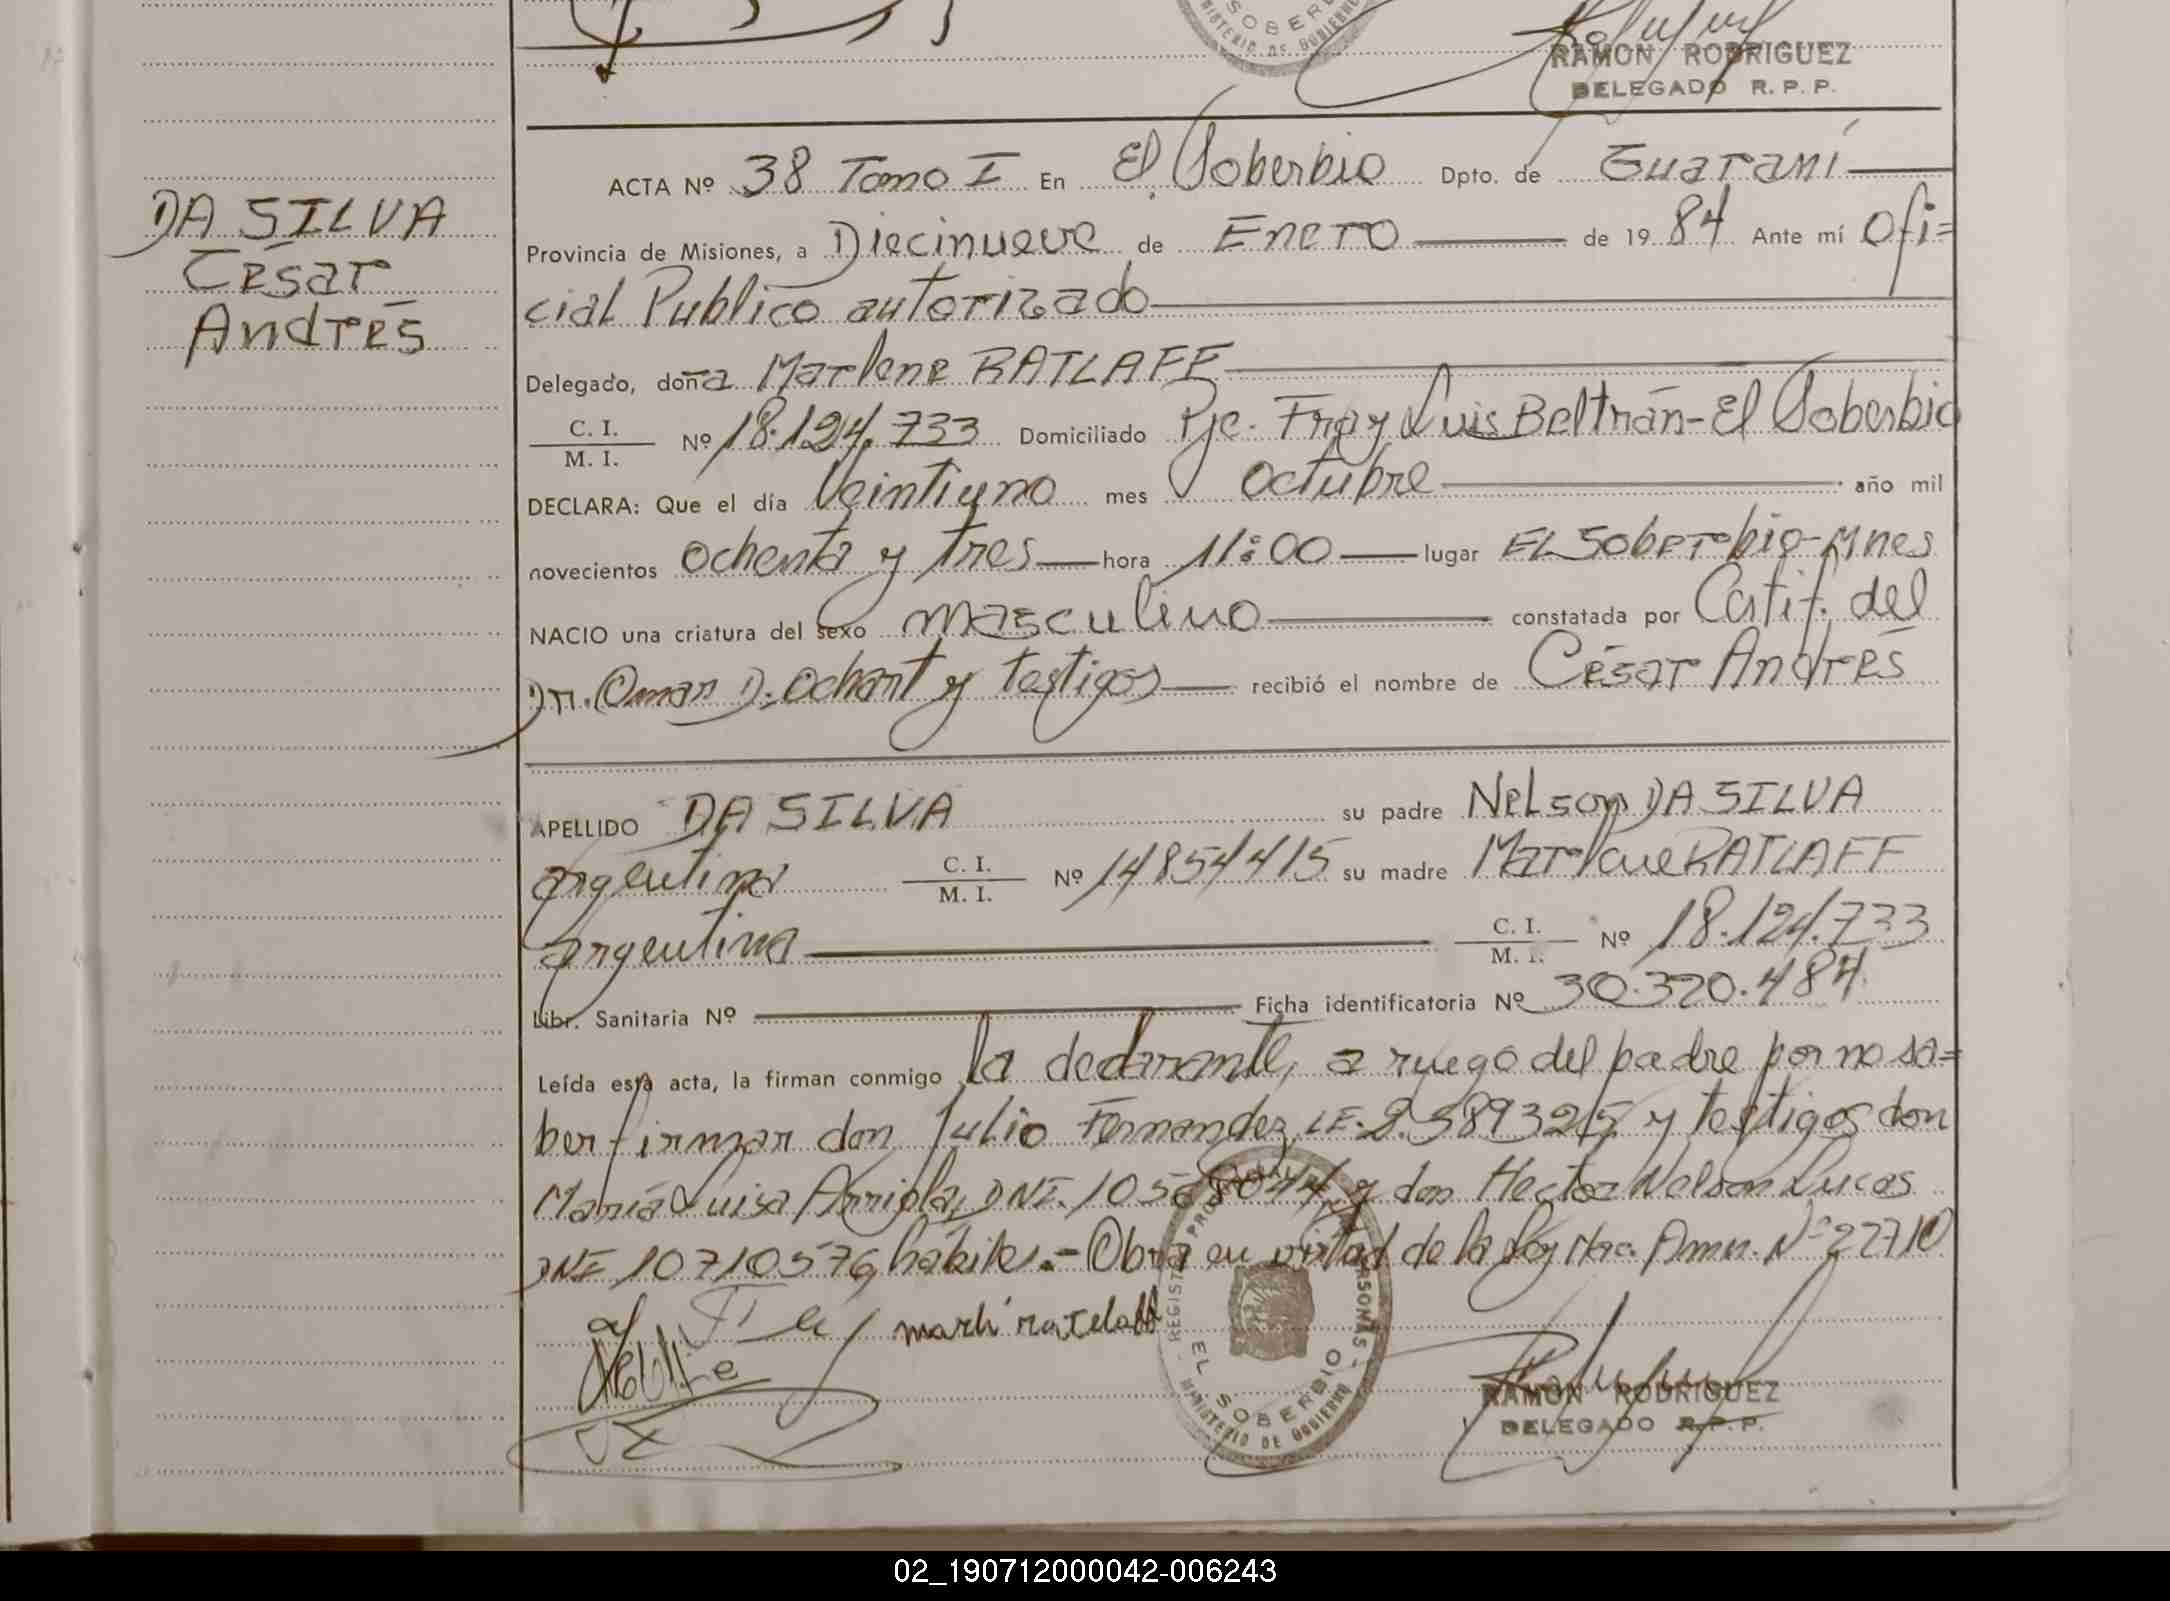 SOBERBIO
MINISTERIO DE GOBIERNO
RAMON RODRIGUEZ
DELEGADO R. P. P.
DA SILVA
César
Andrés
ACTA Nº 38 Tomo I En El Soberbio Dpto. de Guaraní
Provincia de Misiones, a Diecinueve de Enero de 1984 Ante mí Ofi=
cial Publico autorizado
Delegado, doña Marlene RATLAFF
C. I.
M. I. Nº 18.124.733 Domiciliado Pje. Fray Luis Beltrán-El Soberbio
DECLARA: Que el día Veintiuno mes Octubre año mil
novecientos ochenta y tres hora 11:00 lugar El Soberbio-Mnes
NACIO una criatura del sexo masculino constatada por Certif. del
Dr. Omar D. Ochart y testigos recibió el nombre de César Andrés
APELLIDO DA SILVA su padre Nelson DA SILVA
argentino C. I.
M. I. Nº 14854415 su madre Marlene RATLAFF
argentina C. I.
M. I. Nº 18.124.733
Libr. Sanitaria Nº Ficha identificatoria Nº 30.370.484
Leída esta acta, la firman conmigo la declarante, a ruego del padre por no sa=
ber firmar don Julio Fernandez LE. y testigos don
María Luisa Arriola, DNI. 10568044 y don Hector Nelson Lucas
DNI 10710576, hábiles.- Obra en virtud de la Ley Nac. Amn. Nº 22710
REGISTRO PROVINCIAL DE LAS PERSONAS
EL SOBERBIO
MINISTERIO DE GOBIERNO
RAMON RODRIGUEZ
DELEGADO R. P. P.
02_190712000042-006243